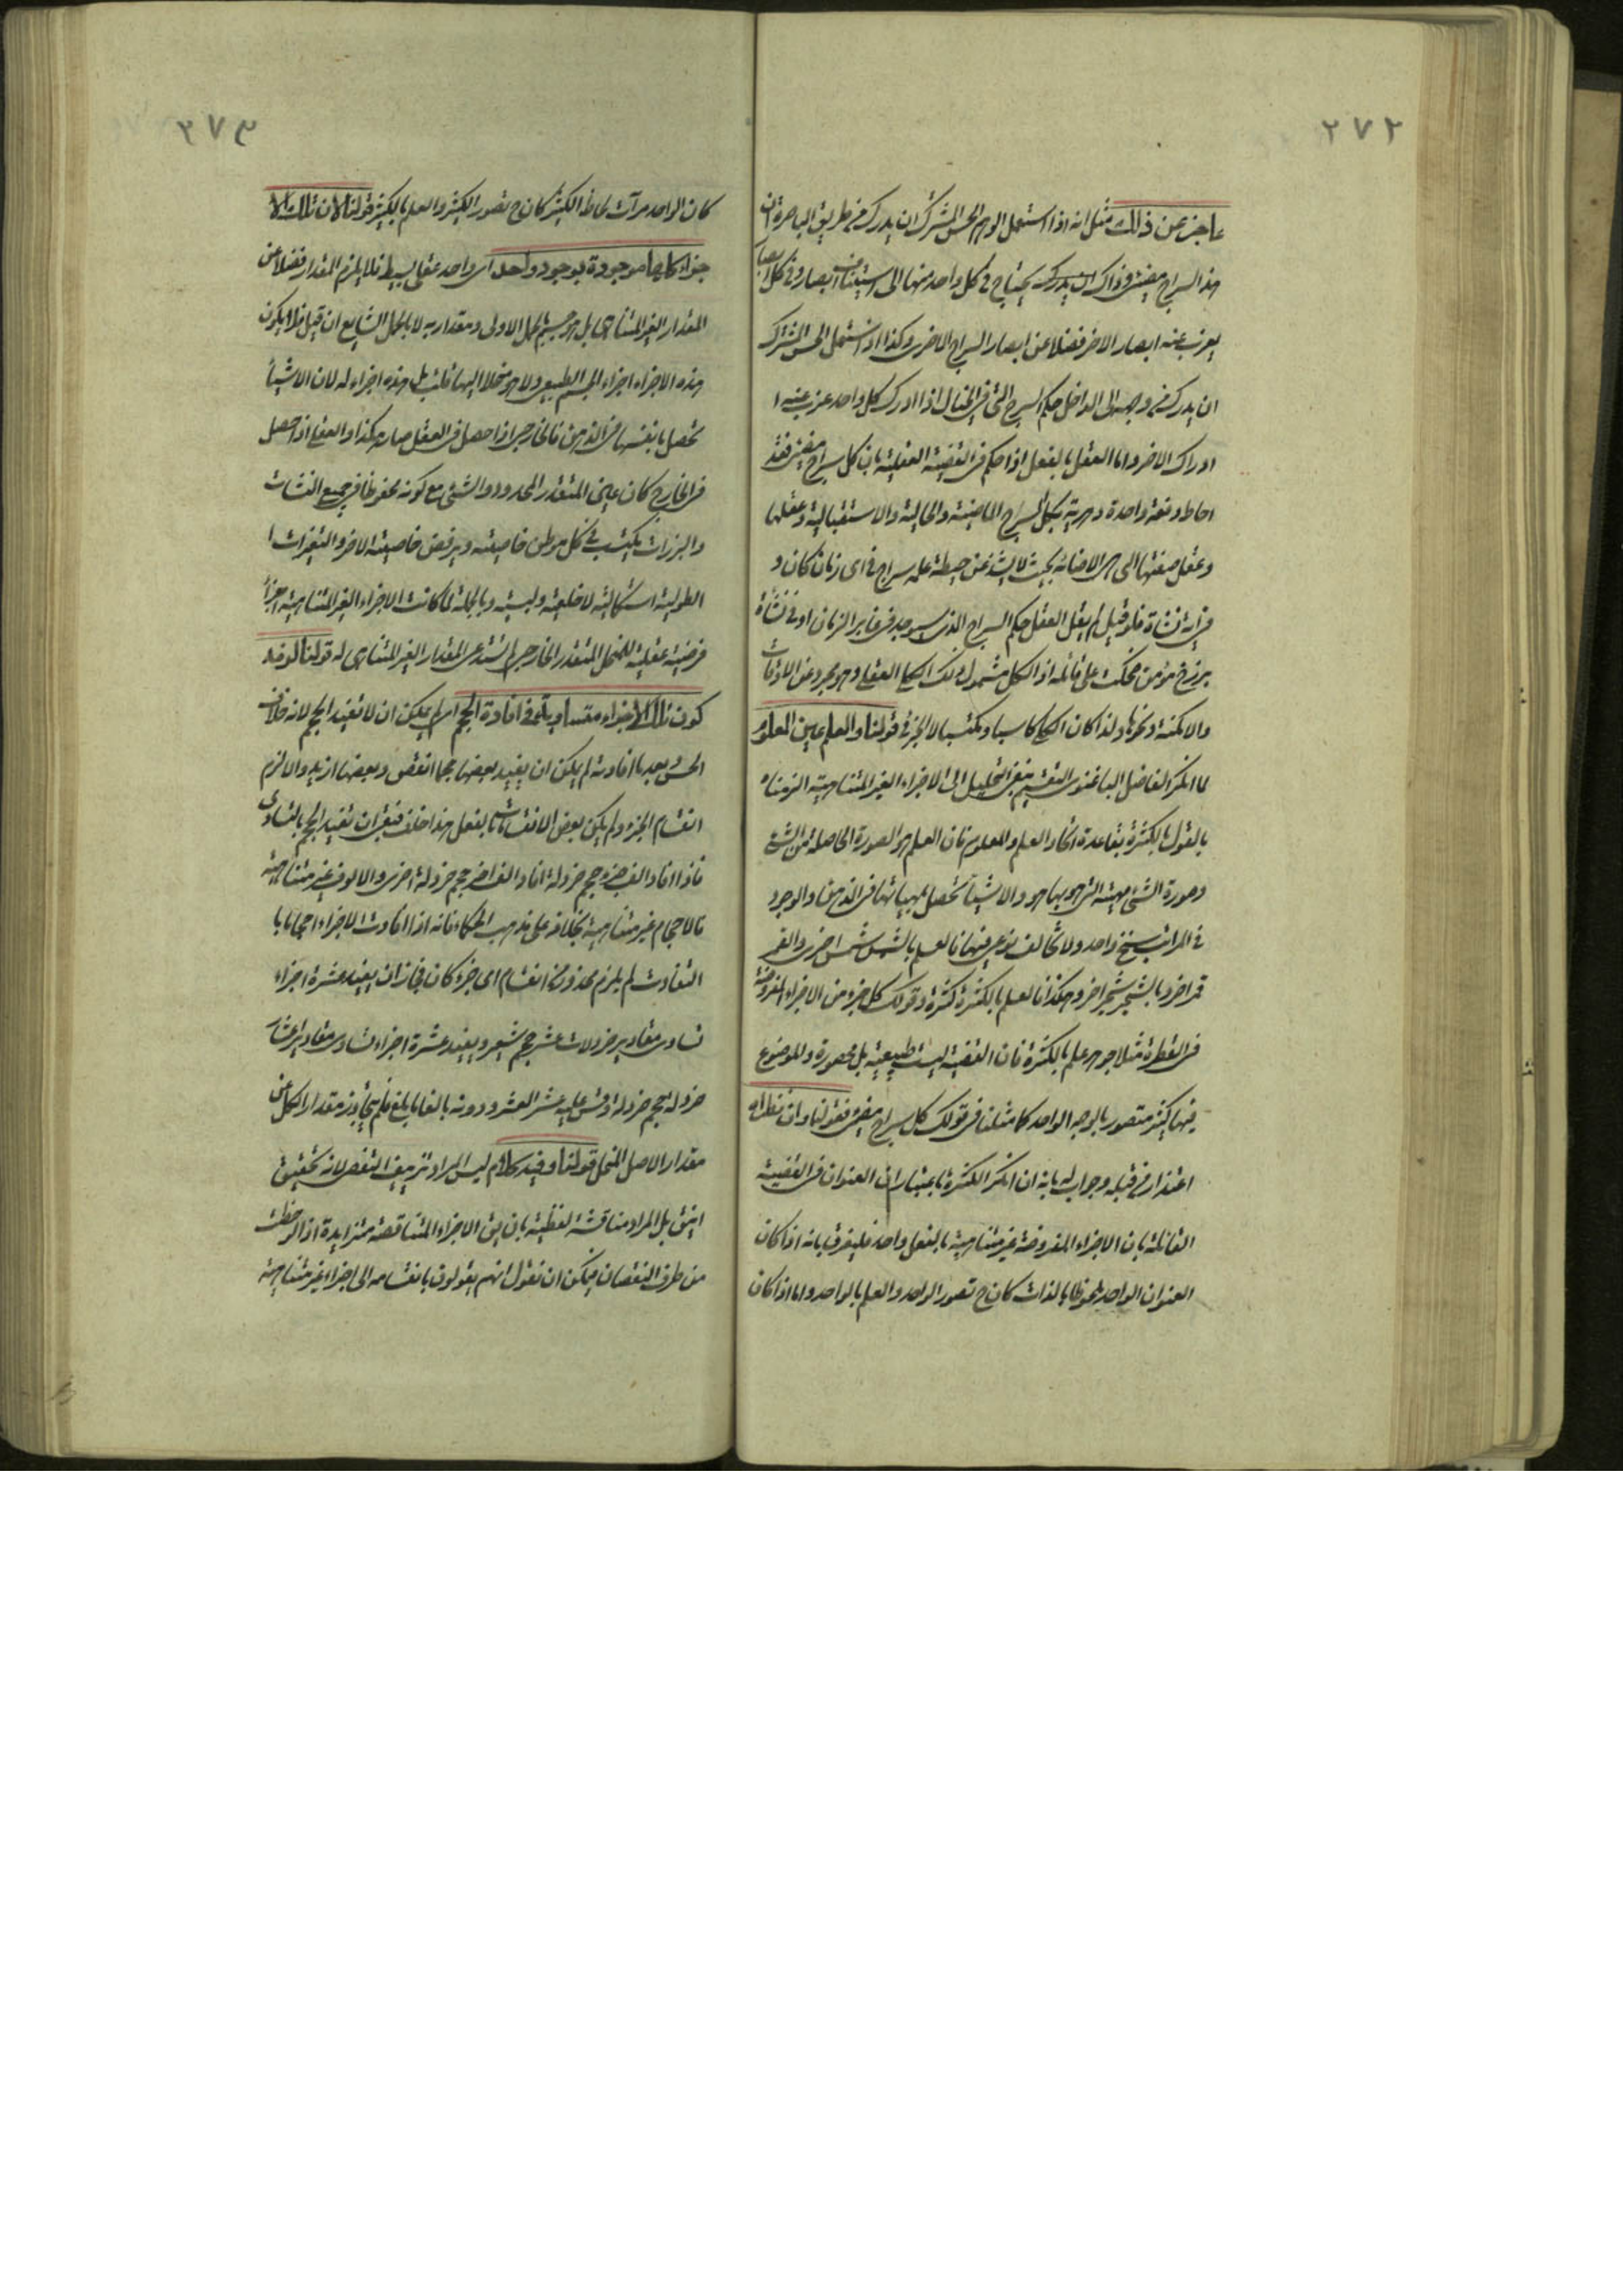 ٢٧٢
عاجز عن ذلك مثل انه اذا استعمل الوهم الحس المشترك ان يدرك من طريق الباصرة ان
هذا السراج مضئ وذاك يدركه يحتاج في كل واحد منها الى استيناف ابصار وفي كل ابصار
يعزب عنه ابصار الاخر فضلا عن ابصار السراج الاخرى وكذا اذا استعمل الحس المشترك
ان يدرك من وجهه الى الداخل حكم السرج التى في الخيال اذا ادرك كل واحد عزب عنه ا
ادراك الاخر واما العقل بالفعل اذا حكم في القضية العقلية بان كل سراج مضئ فقد
احاط دفعة واحدة دهرية بكل السرج الماضية والحالية والاستقبالية وعقلها
وعقل صفتها التى هى الاضائة بحيث لا يشذ عن حيطة علمه سراج في اى زمان كان و
في اية نشاة فلو قيل لم يعقل العقل حكم السراج الذى سيوجد في غابر الزمان او في نشاة
برزخ من ضحكت على قائله اذ الكل مشمول لذلك الكلى العقلى وهو مجرد عن الاوقات
والامكنة ونحوها ولذا كان الكلى كاسبا ومكتسبا لا الجزئى قولنا والعلم عين المعلوم
لما انكر الفاضل الباغنوى التقسيم بنفى التحليل الى الاجزاء الغير المتناهية الزمناه
بالقول بالكثرة بقاعدة اتحاد العلم والمعلوم فان العلم هو الصورة الحاصلة من الشئ
وصورة الشئ مهيته التى هو بها هو والاشياء تحصل بمهياتها في الذهن والوجود
في المراتب سنخ واحد ولا تخالف نوعى فيها فالعلم بالشمس شمس اخرى والقمر
قمر اخر وبالشجر شجر اخر وهكذا فالعلم بالكثرة كثرة وقولك كل جزء من الاجزاء المفروضة
في القطرة مثلا جوهر علم بالكثرة فان القضية ليست طبيعية بل محصورة والموضوع
فيها كثير متصور بالوجه الواحد كما مثلنا في قولك كل سراج مضئ فقولنا وان
اعتذار من قبله وجواب له بانه ان انكر الكثرة باعتبار ان العنوان في القضية
القائلة بان الاجزاء المفروضة غير متناهية بالفعل واحد فليفرق بانه اذا كان
العنوان الواحد ملحوظا بالذات كان ح تصور الواحد والعلم بالواحد واما اذا كان
٢٧٣
كان الواحد مرآت لحاظ الكثير كان ح تصور الكثير والعلم بالكثير قولنا لان تلك الا
جزاء كلها موجودة بوجود واحد اى واحد عقلى بسيط فلا يلزم المقدار فضلا عن
المقدار الغير المتناهى بل هو جسم بالحمل الاولى ومقدار به لا بالحمل الشايع ان قيل فلا يكون
هذه الاجزاء اجزاء الجسم الطبيعى ولا هو منحلا اليها قلت بل هذه اجزاء له لان الاشياء
تحصل بانفسها في الذهن فالخارجى اذا حصل في العقل صار هكذا والعقلى اذا حصل
في الخارج كان عين المتقدر المحدود والشئ مع كونه محفوظا في جميع النشات
والبرزات يكتسب في كل موطن خاصيته ويرفض خاصيته الاخر والتغيرات ا
الطولية استكمالية لا خلعية ولبسية وبالجملة لما كانت الاجزاء الغير المتناهية اجزاء
فرضية عقلية للمنحل المتقدر الخارجى لم تستدعى المقدار الغير المتناهى له قولنا لو فرض
كون تلك الاجزاء متساوية في افادة الحجم اى لم يمكن ان لا تفيد الحجم لانه خلاف
الحس وبعد ما افادته لم يكن ان يفيد بعضها حجما انقص وبعضها ازيد والا لزم
انقسام الجزء ولم يكن بعض الانقسامات بالفعل هذا خلف فبقى ان تفيد الحجم بالتساوى
فاذا افاد الف جزء حجم خردلة افاد الف اخر حجم خردلة اخرى والالوف غير متناهية
فالاحجام غير متناهية بخلافه على مذهب الحكماء فانه اذا افادت الاجزاء احجاما با
التفاوت لم يلزم محذور من انقسام اى جزء كان فجاز ان يفيد عشرة اجزاء
تساوى مقادير خردلات عشر حجم شعير ويفيد عشرة اجزاء تساوى مقادير اعشار
خردلة حجم خردلة وقس عليه عشر العشر ودونه بالغا ما بلغ فلم يتجاوز مقدار الكل عن
مقدار الاصل المنحل قولنا وفيه كلام ليس المراد تزييف التفصى لانه تحقيق
انيق بل المراد مناقشة لفظية بان يق الاجزاء المتناقصة متزايدة اذا لوحظت
من طرف النقصان فيمكن ان نقول انهم يقولون بانقسامه الى اجزاء غير متناهية